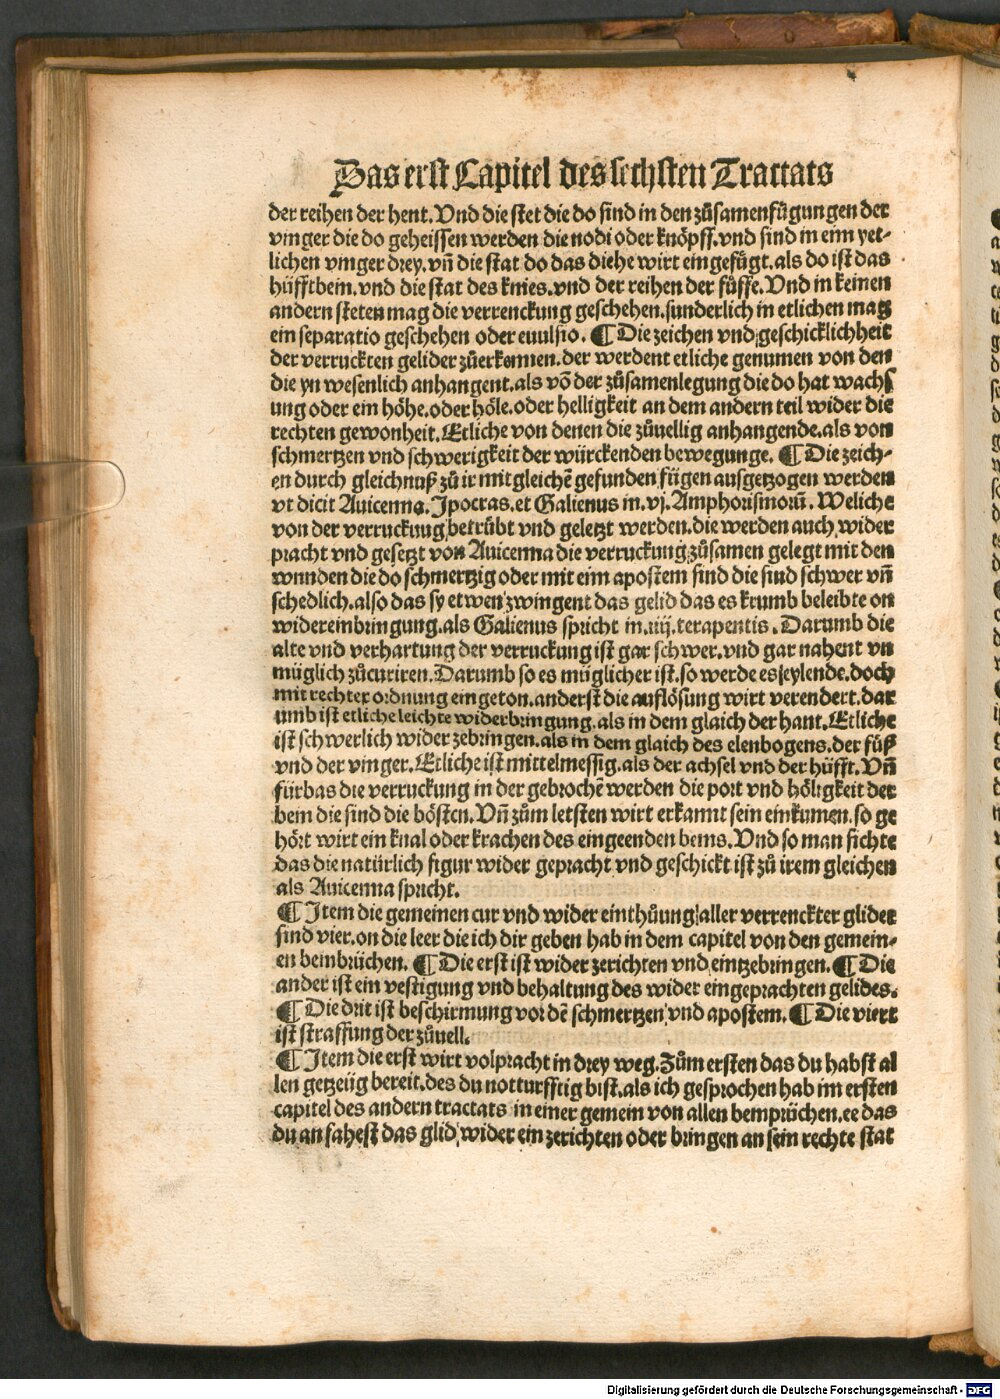 Das erst Capitel des sechsten Tractats
der reihen der hent. Vnd die stet die do sind in den zůsamenfügungen der
vinger die do geheissen werden die nodi oder knöpff. vnd sind in eim yet-
lichen vinger drey. vn̄ die stat do das diehe wirt eingefügt. als do ist das
hüfftbein. vnd die stat des knies. vnd der reihen der füsse. Vnd in keinen
andern steten mag die verrenckung geschehen. sunderlich in etlichen mag
ein separatio geschehen oder euulsio. ¶ Die zeichen vnd geschicklichheit
der verruckten gelider zůerkennen. der werdent etliche genumen von den
die yn wesenlich anhangent. als vō der zůsamenlegung die do hat wachs
ung oder ein höhe. oder höle. oder helligkeit an dem andern teil wider die
rechten gewonheit. Etliche von denen die zůuellig anhangende. als von
schmertzen vnd schwerigkeit der würckenden bewegunge. ¶ Die zeich-
en durch gleichnuß zů ir mit gleichē gefunden fügen ausgetzogen werden
vt dicit Auicenna. Ipocras. et Galienus in. vj. Amphorismorū. Weliche
von der verruckung betrübt vnd geletzt werden. die werden auch wider
pracht vnd gesetzt von Auicenna die verruckung zůsamen gelegt mit den
wunden die do schmertzig oder mit eim apostem sind die sind schwer vn̄
schedlich. also das sy etwen zwingent das gelid das es krumb beleibt e on
widereinbringung. als Galienus spricht in. iiij. terapentis. Darumb die
alte vnd verhartung der verruckung ist gar schwer. vnd gar nahent vn
müglich zůcuriren. Darumb so es müglicher ist. so werde es eylende. doch
mit rechter ordnung eingeton. anderst die auflösung wirt verendert. dar
umb ist etliche leichte widerbringung. als in dem glaich der hant. Etliche
ist schwerlich wider zebringen. als in dem glaich des elenbogens. der füß
vnd der vinger. Etliche ist mittelmessig. als der achsel vnd der hüfft. Vn̄
fürbas die verruckung in der gebrochē werden die port vnd höligkeit der
bein die sind die bösten. Vn̄ zům letsten wirt erkannt sein einkumen. so ge
hört wirt ein knal oder krachen des eingeenden beins. Vnd so man sichte
das die natürlich figur wider gepracht vnd geschickt ist zů irem gleichen
als Auicenna spricht.
¶ Item die gemeinen cur vnd wider einthůung aller verrenckter glider
sind vier. on die leer die ich dir geben hab in dem capitel von den gemein-
en beinbrüchen. ¶ Die erst ist wider zerichten vnd eintzebringen. ¶ Die
ander ist ein vestigung vnd behaltung des wider eingeprachten gelides.
¶ Die drit ist beschirmung vor dē schmertzen vnd apostem. ¶ Die viert
ist straffung der zůuell.
¶ Item die erst wirt volpracht in drey weg. Zům ersten das du habst al
len getzeüg bereit. des du notturfftig bist. als ich gesprochen hab im ersten
capitel des andern tractats in einer gemein von allen beinprüchen. ee das
du anfahest das glid wider ein zerichten oder bringen an sein rechte stat
Digitalisierung gefördert durch die Deutsche Forschungsgemeinschaft - DFG